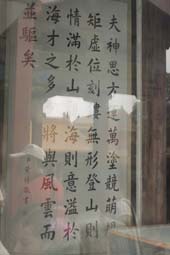 夫神思方運萬塗競萌
矩虛位刻鏤無形登山則
情滿於山海則意溢於
海才之多將與風雲而
並驅矣